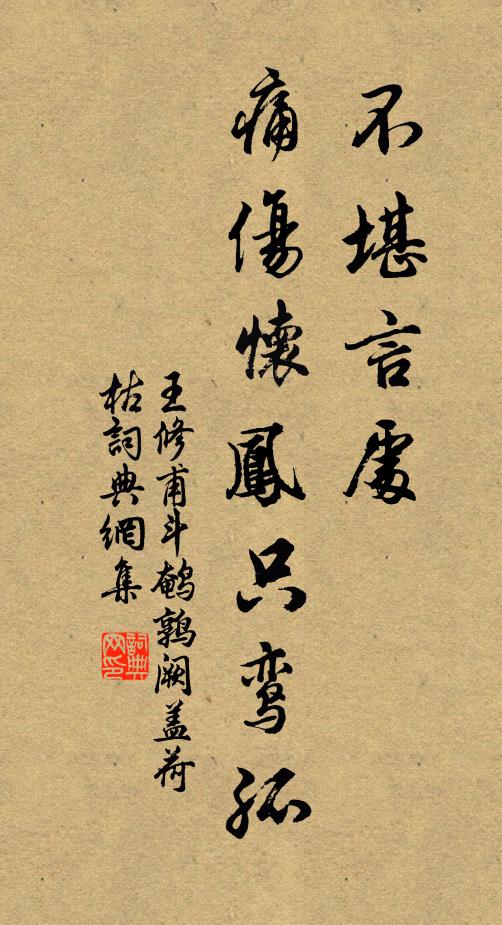 不堪言處
痛傷懷鳳只鸾孤
王修甫斗鹌鹑阙盖荷
枯詞典網集
詞典网印